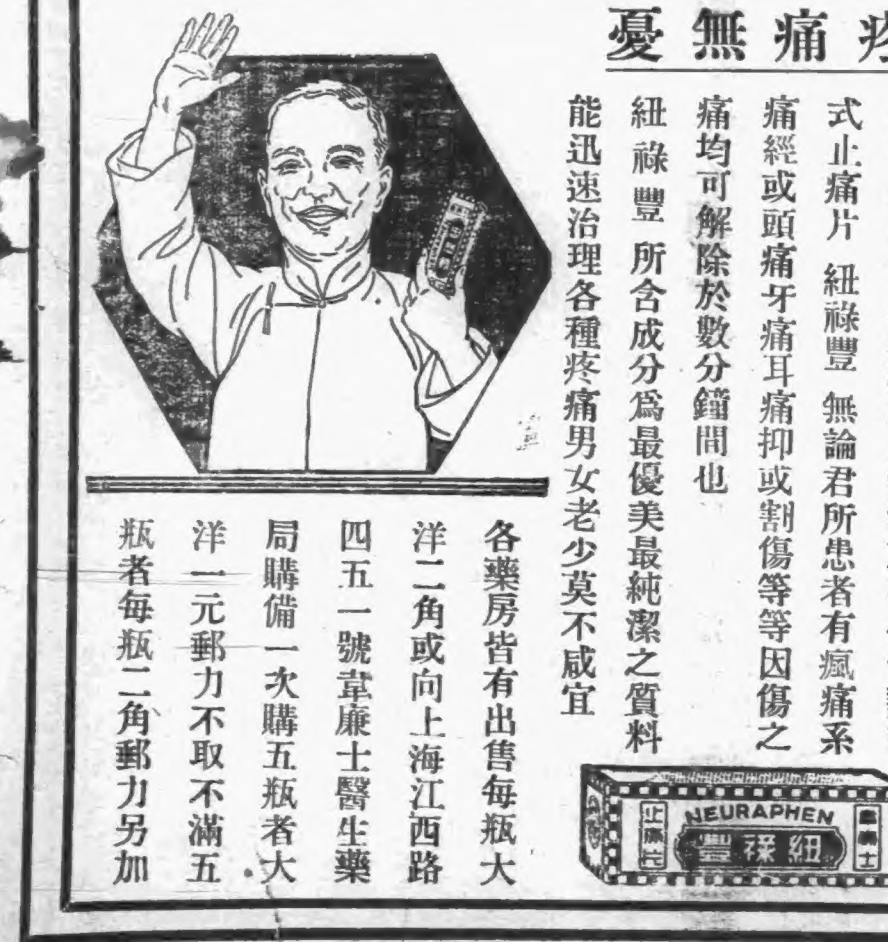 痛無憂
式止痛片 紐祿豐 無論君所患者有瘋痛系
痛經或頭痛牙痛耳痛抑或割傷等等因傷之
痛均可解除於數分鐘間也
紐祿豐 所含成分爲最優美最純潔之質料
能迅速治理各種疼痛男女老少莫不咸宜
各藥房皆有出售每瓶大
洋二角或向上海江西路
四五一號韋廉士醫生藥
局購備一次購五瓶者大
洋一元郵力不取不滿五
瓶者每瓶二角郵力另加
NEURAPHEN
紐祿豐
止痛片